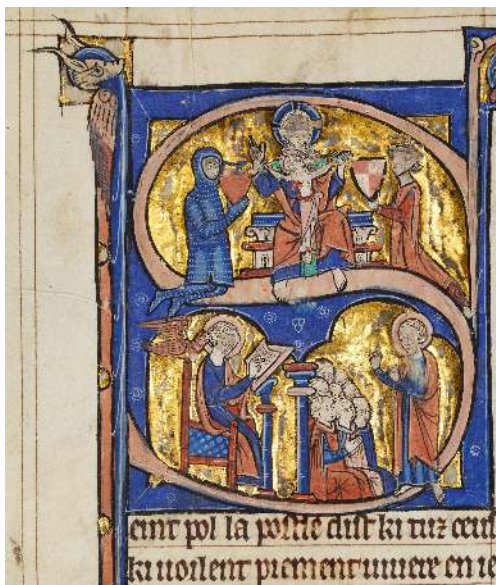 Seint pol la postle dist ki tuz ceus
ki uoilent piement uiuere en ie